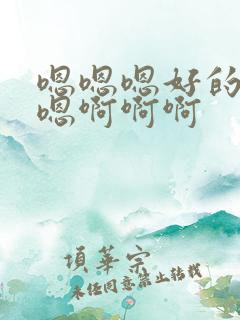 嗯嗯嗯好的
嗯啊啊啊
項華宗
未经同意禁止转载